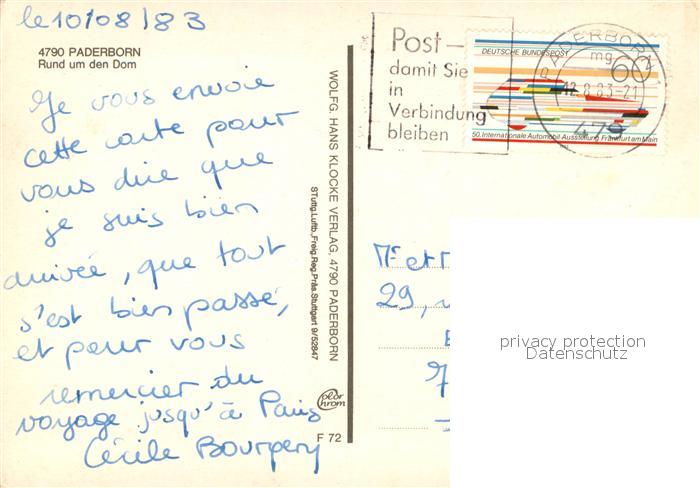 le 10/08/83
4790 PADERBORN
Rund um den Dom
Je vous envoie
cette carte pour
vous dire que
je suis bien
arrivée, que tout
s'est bien passé,
et pour vous
remercier du
voyage jusqu'à Paris
Cécile
WOLFG. HANS KLOCKE VERLAG, 4790 PADERBORN
STuttg.Luftb.,Freig.Reg.Präs.Stuttgart 9/52847
Color
Chrom
F 72
Post –
damit Sie
in
Verbindung
bleiben
DEUTSCHE BUNDESPOST
60
50. Internationale Automobil-Ausstellung Frankfurt am Main
PADERBORN
mg
12.8.83-21
479
Mr et
29,
7
privacy protection
Datenschutz